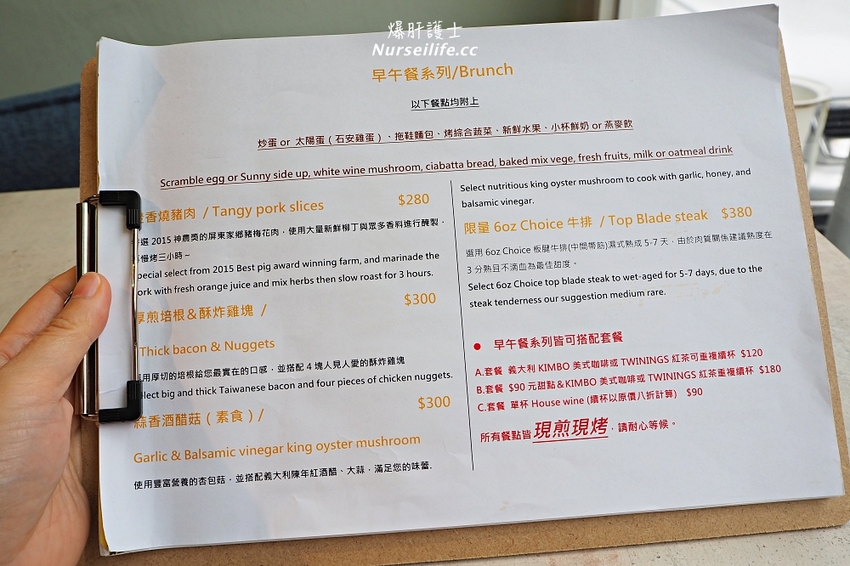 爆肝護士
Nurseilife.cc
早午餐系列/Brunch
以下餐點均附上
炒蛋 or 太陽蛋（石安雞蛋）、拖鞋麵包、烤綜合蔬菜、新鮮水果、小杯鮮奶 or 燕麥飲
Scramble egg or Sunny side up, white wine mushroom, ciabatta bread, baked mix vege, fresh fruits, milk or oatmeal drink
香燒豬肉 / Tangy pork slices $280
選 2015 神農獎的屏東家鄉豬梅花肉，使用大量新鮮柳丁與眾多香料進行醃製，
慢烤三小時～
pecial select from 2015 Best pig award winning farm, and marinade the
ork with fresh orange juice and mix herbs then slow roast for 3 hours.
厚煎培根＆酥炸雞塊 / $300
Thick bacon & Nuggets
用厚切的培根給您最實在的口感，並搭配 4 塊人見人愛的酥炸雞塊
elect big and thick Taiwanese bacon and four pieces of chicken nuggets.
蒜香酒醋菇（素食）/ $300
Garlic & Balsamic vinegar king oyster mushroom
使用豐富營養的杏包菇，並搭配義大利陳年紅酒醋、大蒜，滿足您的味蕾.
Select nutritious king oyster mushroom to cook with garlic, honey, and
balsamic vinegar.
限量 6oz Choice 牛排 / Top Blade steak $380
選用 6oz Choice 板腱牛排(中間帶筋)濕式熟成 5-7 天，由於肉質關係建議熟度在
3 分熟且不滴血為最佳甜度。
Select 6oz Choice top blade steak to wet-aged for 5-7 days, due to the
steak tenderness our suggestion medium rare.
● 早午餐系列皆可搭配套餐
A.套餐 義大利 KIMBO 美式咖啡或 TWININGS 紅茶可重複續杯 $120
B.套餐 $90 元甜點＆KIMBO 美式咖啡或 TWININGS 紅茶重複續杯 $180
C.套餐 單杯 House wine (續杯以原價八折計算) $90
所有餐點皆現煎現烤，請耐心等候。